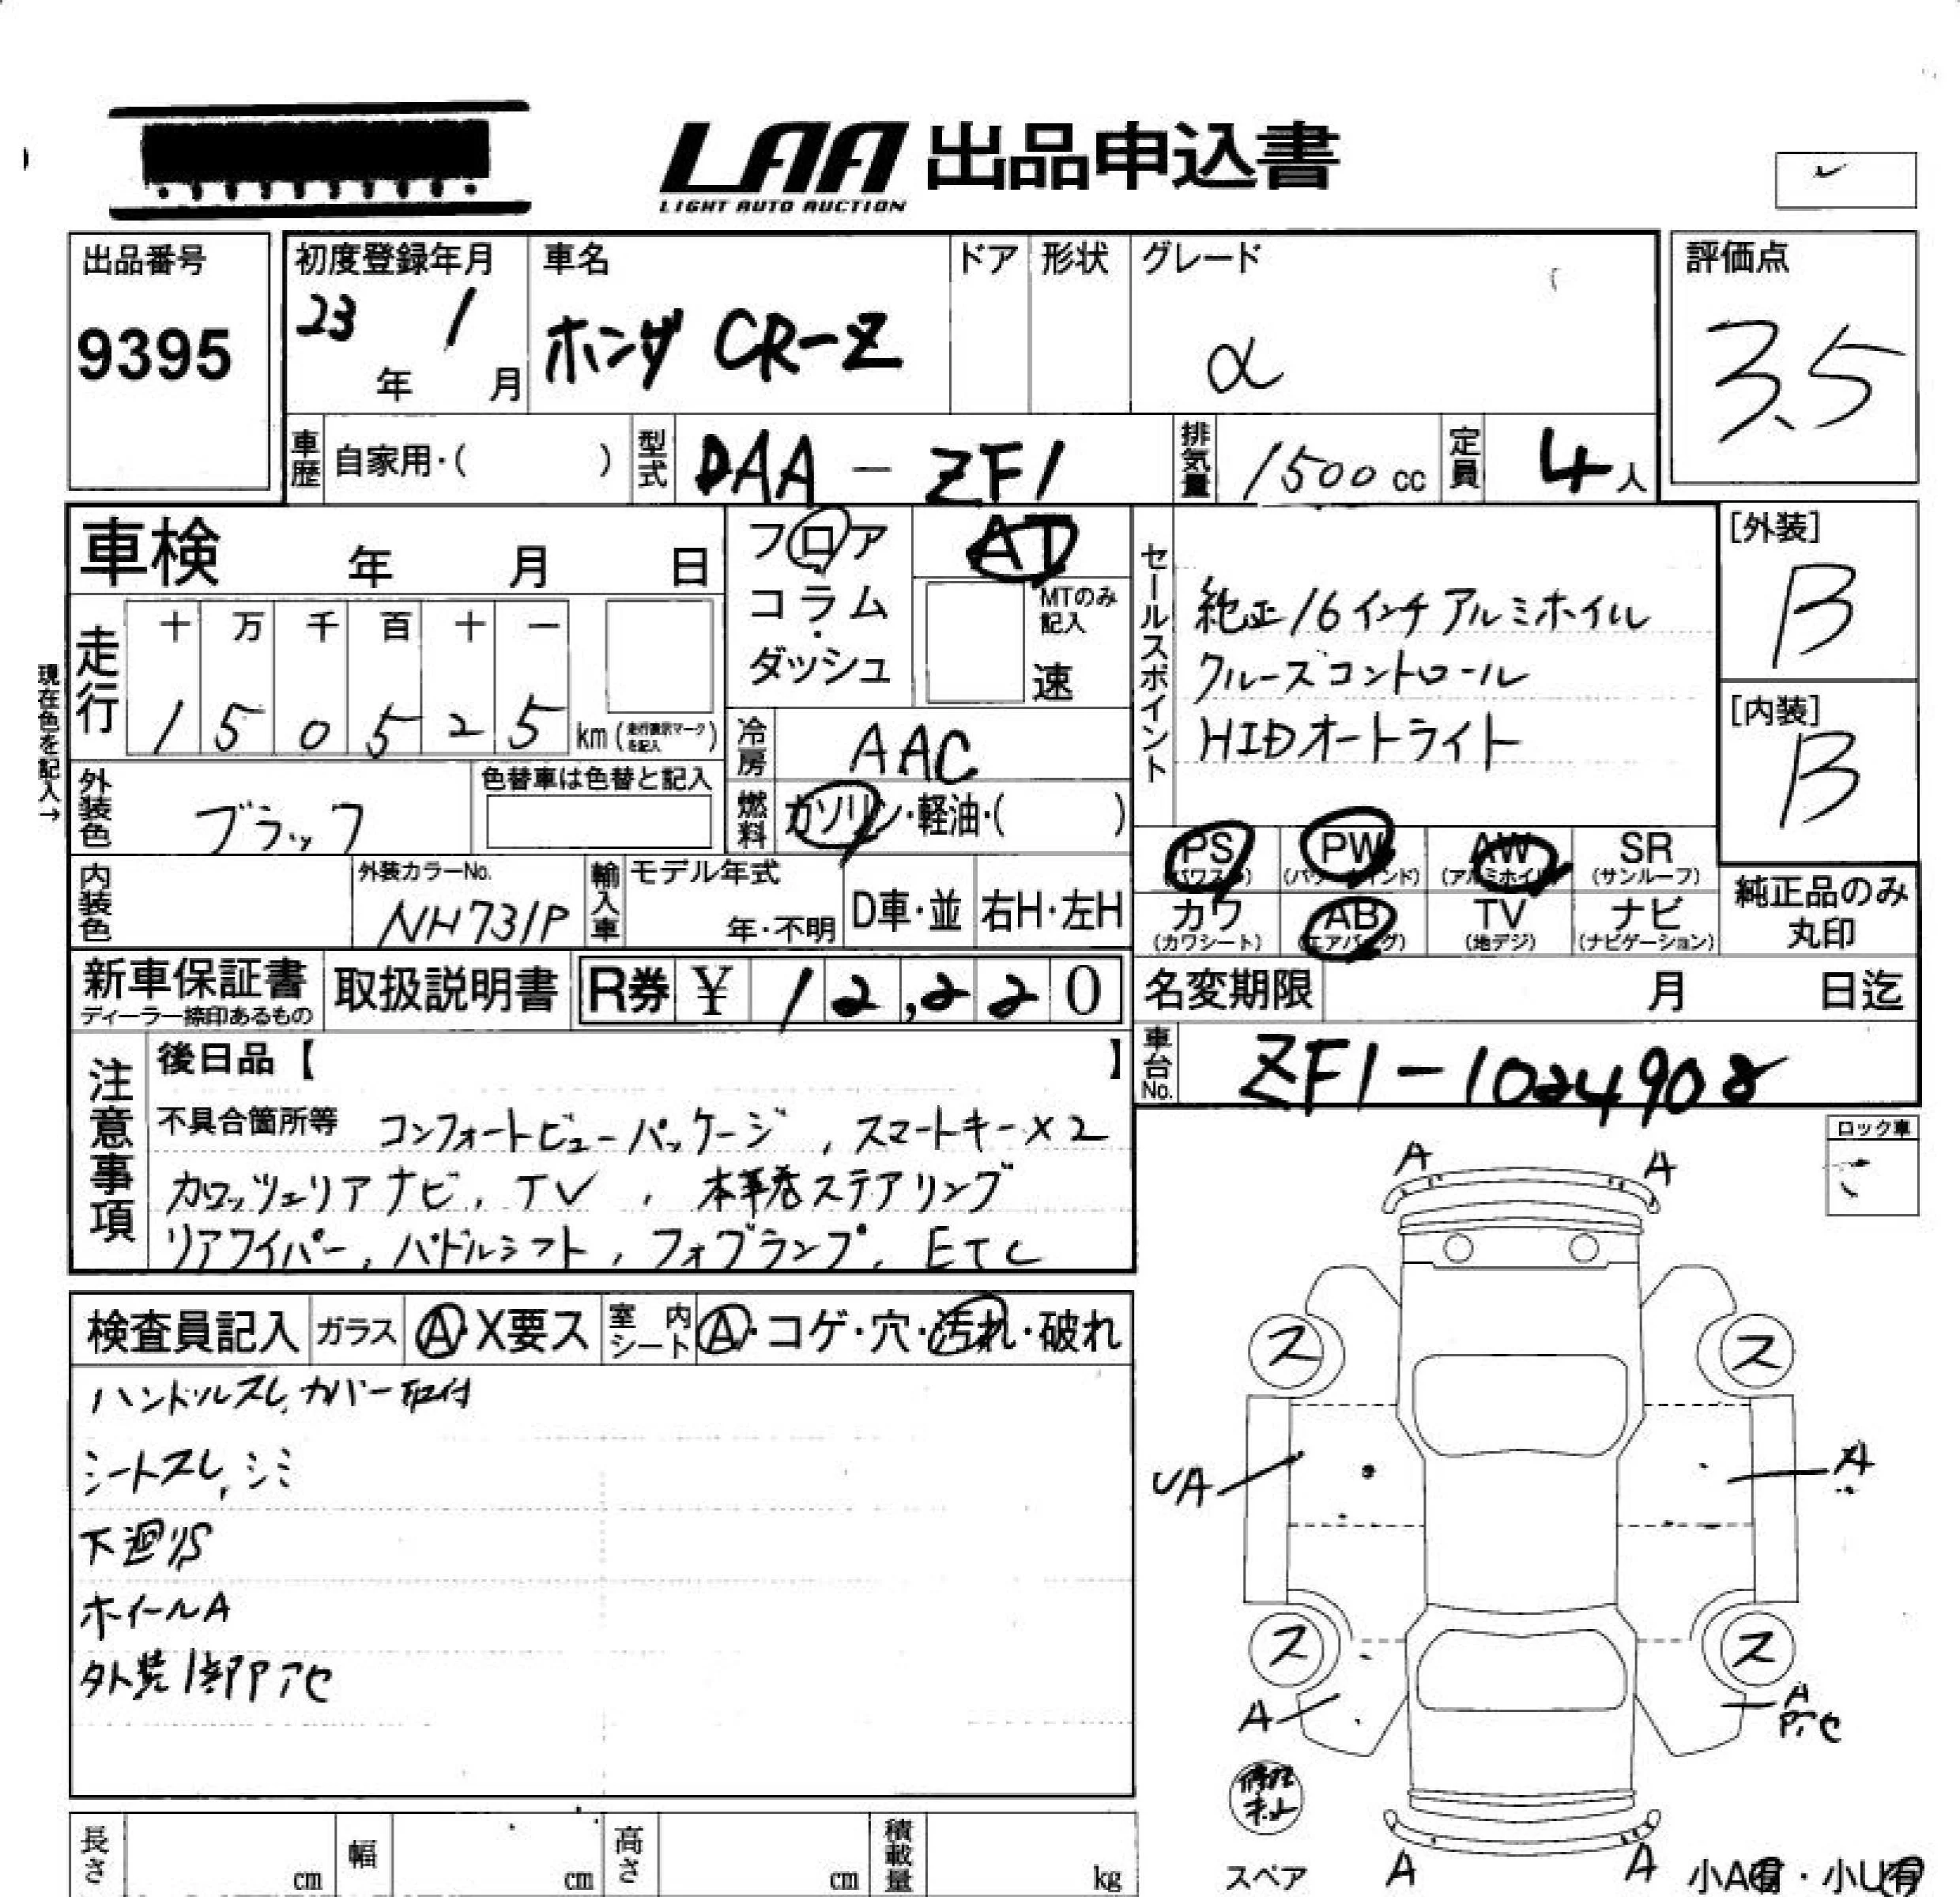 LAA 出品申込書
LIGHT AUTO AUCTION
出品番号
9395
初度登録年月
23 年 1 月
車名
ホンダ CR-Z
ドア
形状
グレード
α
評価点
3.5
車歴
自家用・( )
型式
DAA - ZF1
排気量
1500 cc
定員
4 人
車検 年 月 日
フロア
コラム・
ダッシュ
AT
MTのみ記入
速
セールスポイント
純正16インチアルミホイル
クルーズコントロール
HIDオートライト
[外装]
B
[内装]
B
現在色を記入→
走行
十 万 千 百 十 一
1 5 0 5 2 5 km (走行表示マークを記入)
冷房
AAC
燃料
ガソリン・軽油・( )
外装色
ブラック
色替車は色替と記入
内装色
外装カラーNo.
NH731P
輸入車
モデル年式
年・不明
D車・並
右H・左H
PS
(パワステ)
PW
(パワーウインド)
AW
(アルミホイル)
SR
(サンルーフ)
カワ
(カワシート)
AB
(エアバッグ)
TV
(地デジ)
ナビ
(ナビゲーション)
純正品のみ
丸印
新車保証書
ディーラー捺印あるもの
取扱説明書
R券 ¥ 12,220
名変期限 月 日迄
車台No.
ZF1-1024902
注意事項
後日品【 】
不具合箇所等 コンフォートビューパッケージ, スマートキー×2
カロッツェリアナビ, TV , 本革巻ステアリング
リアワイパー, パドルシフト, フォグランプ, ETC
ロック車
検査員記入
ガラス
A・X要ス
室内シート
A・コゲ・穴・汚れ・破れ
ハンドルスレ, カバー取付
シートスレ, シミ
下廻りS
ホイールA
外装1部Pアセ
A
A
ス
ス
UA
A
ス
ス
A
A
A
A
スペア
小A有・小U有
長さ cm
幅 cm
高さ cm
積載量 kg